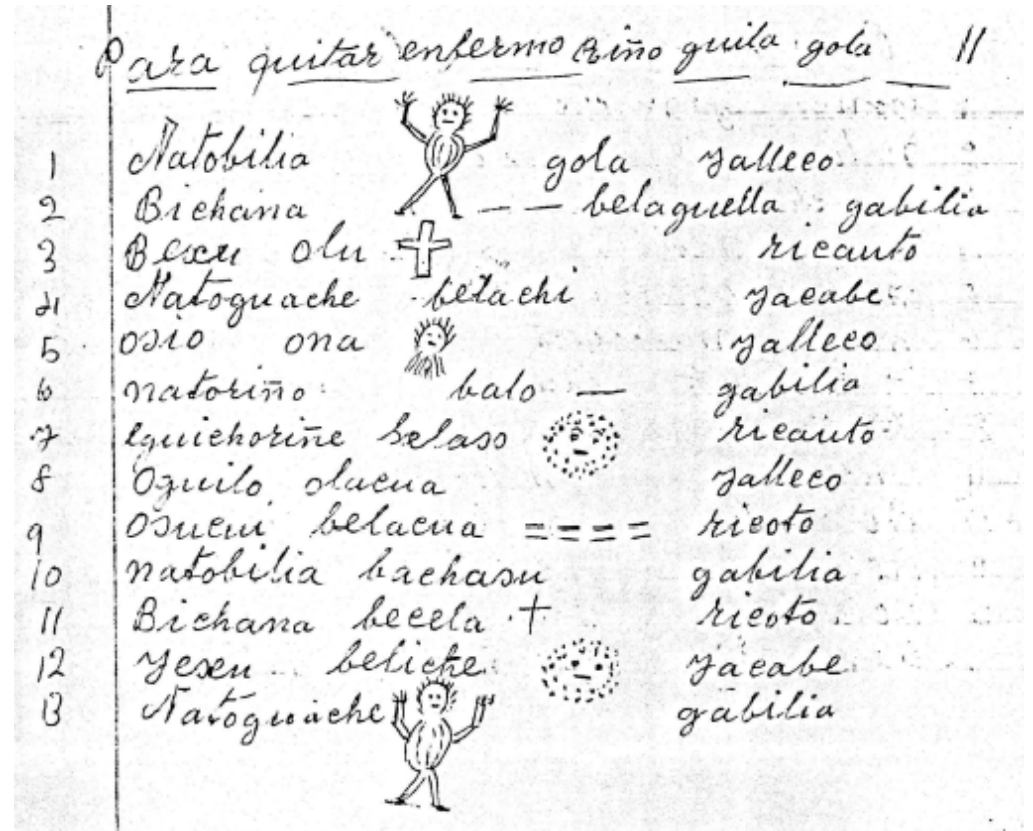 Para quitar enfermo Riño guila gola 11
1 Natobilia gola yalleco
2 Bichana belaguella gabilia
3 Bexu olu ricauto
4 Natoguache belachi yacabe
5 osio ona yalleco
6 natoriño balo gabilia
7 Iguichoriñe belaso ricauto
8 Oguilo olacua yalleco
9 osucui belacua ricoto
10 natobilia bachasu gabilia
11 Bichana becela ricoto
12 yexu beliche yacabe
13 Natoguache gabilia